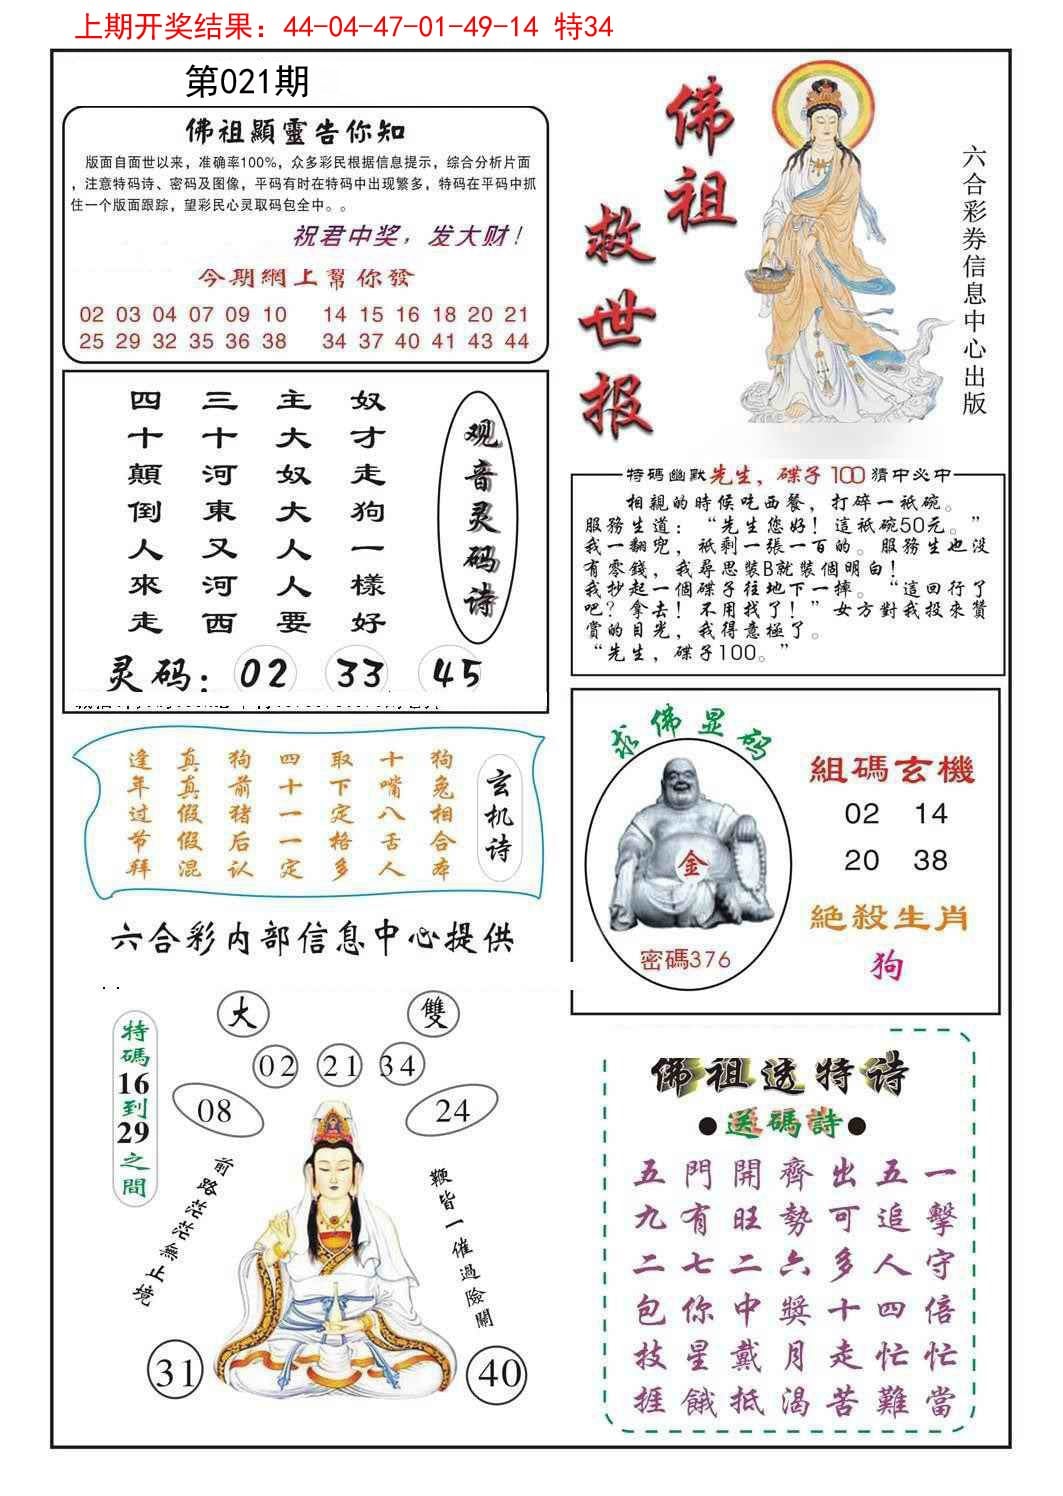 上期开奖结果：44-04-47-01-49-14 特34
第021期
佛祖顯靈告你知
版面自面世以来，准确率100%，众多彩民根据信息提示，综合分析片面
，注意特码诗、密码及图像，平码有时在特码中出现繁多，特码在平码中抓
住一个版面跟踪，望彩民心灵取码包全中。。
祝君中奖，发大财！
今期網上幫你發
02 03 04 07 09 10 14 15 16 18 20 21
25 29 32 35 36 38 34 37 40 41 43 44
佛祖
救世报
六合彩券信息中心出版
观音灵码诗
奴才走狗一樣好
主大奴大人人要
三十河東又河西
四十顛倒人來走
灵码：02 33 45
特碼幽默先生，碟子100猜中必中
相親的時候吃西餐，打碎一祇碗。
服務生道：“先生您好！這祇碗50元。”
我一翻兜，祇剩一張一百的。服務生也没
有零錢，我尋思裝B就裝個明白！
我抄起一個碟子往地下一摔。“這回行了
吧？拿去！不用找了！”女方對我投來贊
賞的目光，我得意極了。
“先生，碟子100。”
玄机诗
狗兔相合本
十嘴八舌人
取下定格多
四十一一定
狗前猪后认
真真假假混
逢年过节拜
六合彩内部信息中心提供
求佛显码
金
密碼376
組碼玄機
02 14
20 38
絕殺生肖
狗
大
雙
02 21 34
08
24
特碼16到29之間
前路茫茫無止境
鞭皆一催過險關
31
40
佛祖透特诗
●送碼詩●
五門開齊出五一
九有旺勢可追擊
二七二六多人守
包你中獎十四倍
技星戴月走忙忙
捱餓抵渴苦難當